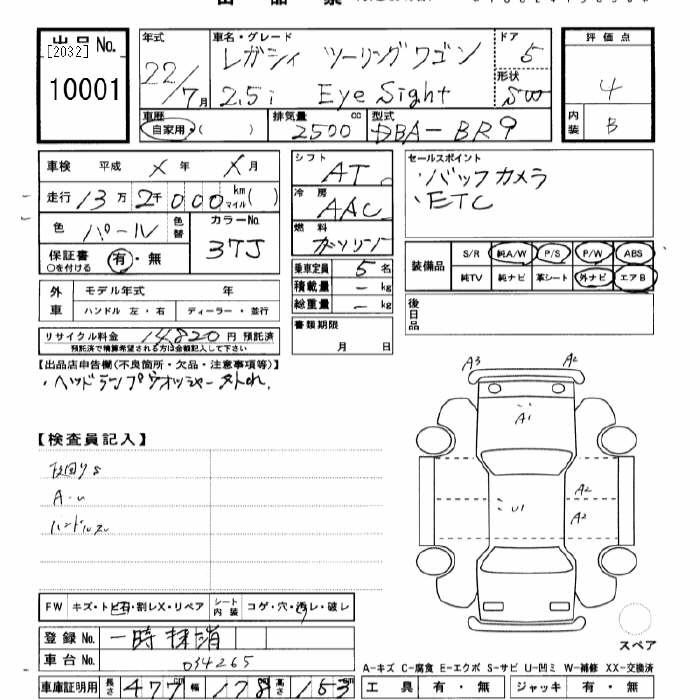 出品No.
[2032]
10001
年式
22/7月
車名・グレード
レガシィ ツーリングワゴン
2.5i EyeSight
ドア
5
形状
SW
評価点
4
内装
B
車歴
自家用・( )
排気量
2500cc
型式
DBA-BR9
車検 平成 X年 X月
走行 13万2千000kmマイル( )
色 パール 色替
カラーNo.
37J
保証書 有・無
○を付ける
シフト
AT
冷房
AAC
燃料
ガソリン
セールスポイント
・バックカメラ
・ETC
乗車定員 5名
積載量 -kg
総重量 -kg
装備品 S/R 純A/W P/S P/W ABS
純TV 純ナビ 革シート 外ナビ エアB
外車 モデル年式 年
ハンドル 左・右 ディーラー・並行
書類期限
月 日
後日品
リサイクル料金 14,820円 預託済
預託済で精算希望される方は金額記入して下さい
【出品店申告欄(不良箇所・欠品・注意事項等)】
・ヘッドランプウォッシャー外れ.
【検査員記入】
A・U
ハンドルスレ
A3
A2
A1
U1
A2
A2
FW キズ・トビ石・割レX・リペア シート内装 コゲ・穴・汚レ・破レ
登録No. 一時抹消
車台No. 034265
スペア
A-キズ C-腐食 E-エクボ S-サビ U-凹ミ W-補修 XX-交換済
車庫証明用 長さ 477cm 幅 178cm 高さ 153cm
工具 有・無 ジャッキ 有・無